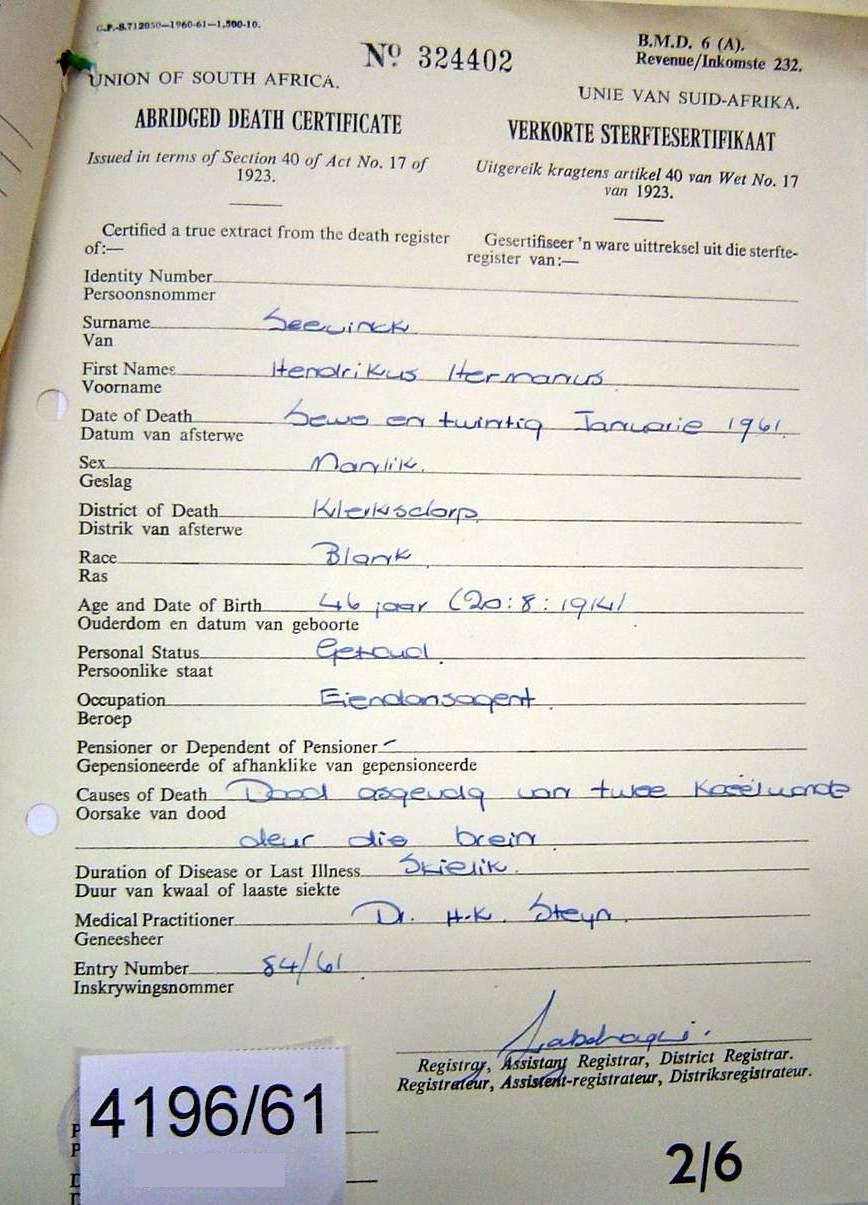 G.P.-S.712050—1960-61—1,500-10.
B.M.D. 6 (A).
Nº 324402
Revenue/Inkomste 232.
UNION OF SOUTH AFRICA.
UNIE VAN SUID-AFRIKA.
ABRIDGED DEATH CERTIFICATE
VERKORTE STERFTESERTIFIKAAT
Issued in terms of Section 40 of Act No. 17 of
1923.
Uitgereik kragtens artikel 40 van Wet No. 17
van 1923.
Certified a true extract from the death register
of:—
Gesertifiseer 'n ware uittreksel uit die sterfte-
register van:—
Identity Number
Persoonsnommer
Surname Seevinck
Van
First Names Hendrikus Hermanus
Voorname
Date of Death Sewe en twintig Januarie 1961.
Datum van afsterwe
Sex Manlik.
Geslag
District of Death Klerksdorp
Distrik van afsterwe
Race Blank
Ras
Age and Date of Birth 46 jaar (20:8:1914)
Ouderdom en datum van geboorte
Personal Status Getroud.
Persoonlike staat
Occupation Eiendomsagent.
Beroep
Pensioner or Dependent of Pensioner –
Gepensioneerde of afhanklike van gepensioneerde
Causes of Death Dood asgevolg van twee Koeëlwonde
Oorsake van dood
deur die brein.
Duration of Disease or Last Illness Skielik.
Duur van kwaal of laaste siekte
Medical Practitioner Dr. H.K. Steyn.
Geneesheer
Entry Number 84/61.
Inskrywingsnommer
Registrar, Assistant Registrar, District Registrar.
Registrateur, Assistent-registrateur, Distriksregistrateur.
4196/61
2/6